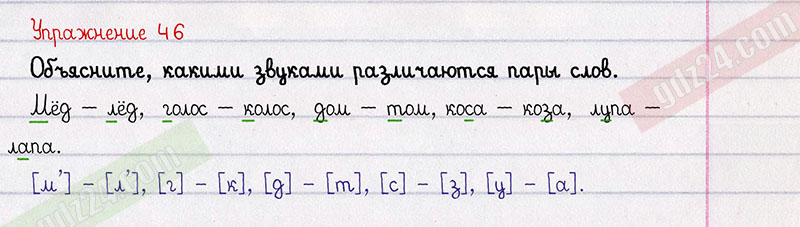 Упражнение 46
Объясните, какими звуками различаются пары слов.
Мёд – лёд, голос – колос, дом – том, коса – коза, лупа –
лапа.
[м'] – [л'], [г] – [к], [д] – [т], [с] – [з], [у] – [а].
gdz24.com
gdz24.com